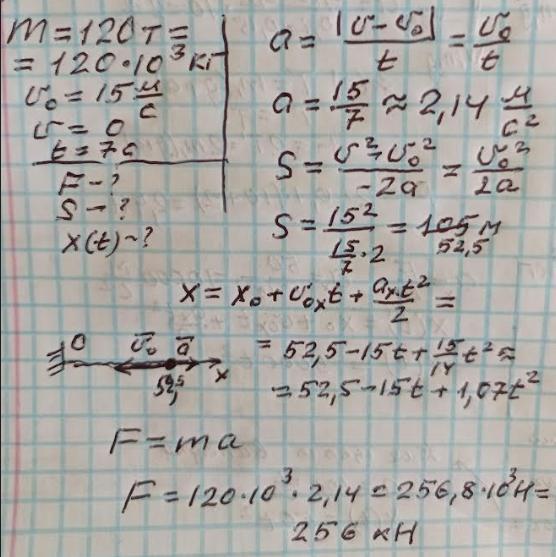 m = 120 т =
= 120·10³ кг
v₀ = 15 м/с
v = 0
t = 7 с
F - ?
S - ?
x(t) - ?
a = |v - v₀| / t = v₀ / t
a = 15/7 ≈ 2,14 м/с²
S = (v² - v₀²) / (-2a) = v₀² / 2a
S = 15² / (15/7 · 2) = 105 м
52,5
x = x₀ + v₀ₓt + aₓt²/2 =
0 v̄₀ ā x
52,5
= 52,5 - 15t + 15/14 t² ≈
= 52,5 - 15t + 1,07t²
F = ma
F = 120·10³ · 2,14 = 256,8·10³ Н =
256 кН